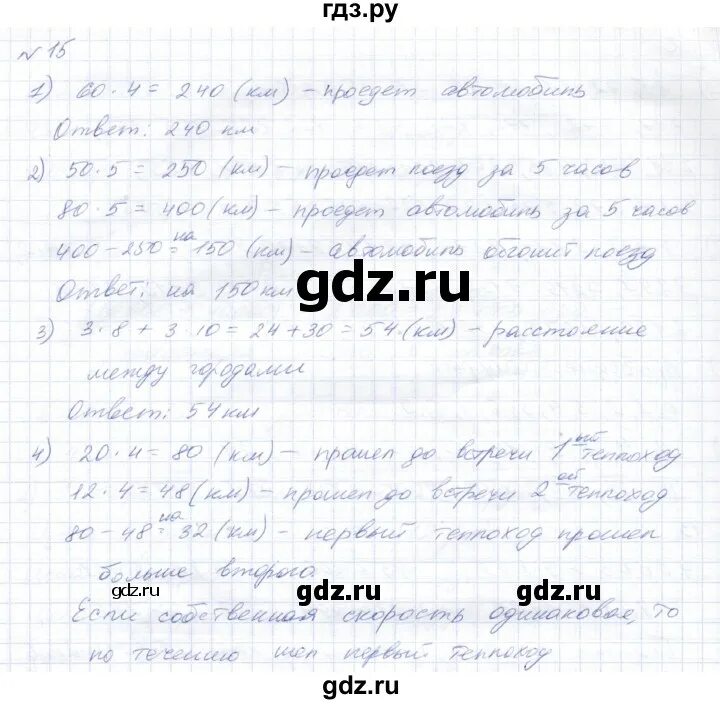 гдз.ру
№ 15
1) 60 · 4 = 240 (км) – проедет автомобиль
Ответ: 240 км
2) 50 · 5 = 250 (км) – проедет поезд за 5 часов
80 · 5 = 400 (км) – проедет автомобиль за 5 часов
400 – 250 = на 150 (км) – автомобиль обгонит поезд
Ответ: на 150 км
gdz.ru
3) 3 · 8 + 3 · 10 = 24 + 30 = 54 (км) – расстояние
между городами
Ответ: 54 км
4) 20 · 4 = 80 (км) – прошел до встречи 1ый теплоход
12 · 4 = 48 (км) – прошел до встречи 2ой теплоход
80 – 48 = на 32 (км) – первый теплоход прошел
больше второго.
gdz.ru gdz.ru gdz.ru
Если собственная скорость одинаковая, то
по течению шел первый теплоход
gdz.ru